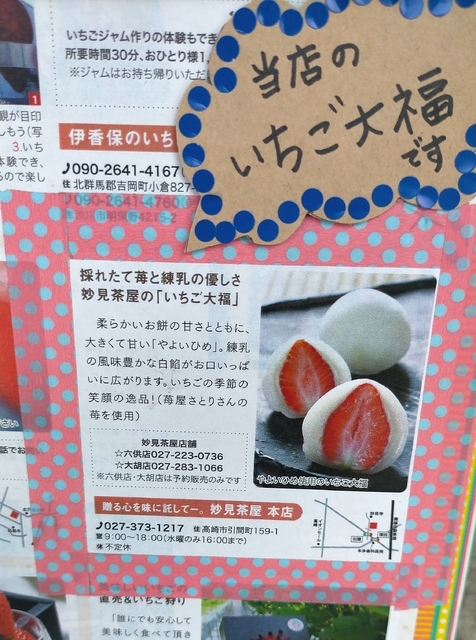 いちごジャム作りの体験もでき
所要時間30分、おひとり様1
※ジャムはお持ち帰りいただ
1
観が目印
しもう(写
3.いち
体験でき、
ので楽し
伊香保のいち
090-2641-4167
住 北群馬郡吉岡町小倉827-
090-2641-4760
当店の
いちご大福
です
採れたて苺と練乳の優しさ
妙見茶屋の「いちご大福」
柔らかいお餅の甘さとともに、
大きくて甘い「やよいひめ」。練乳
の風味豊かな白餡がお口いっぱ
いに広がります。いちごの季節の
笑顔の逸品!(苺屋さとりさんの
苺を使用)
妙見茶屋店舗
☆六供店027-223-0736
☆大胡店027-283-1066
※六供店・大胡店は予約販売のみです
やよいひめ使用のいちご大福
贈る心を味に託してー。妙見茶屋 本店
027-373-1217 住 高崎市引間町159-1
営 9:00〜18:00(水曜のみ16:00まで)
休 不定休
直売&いちご狩り
「誰にでも安心して
美味しく食べて頂き